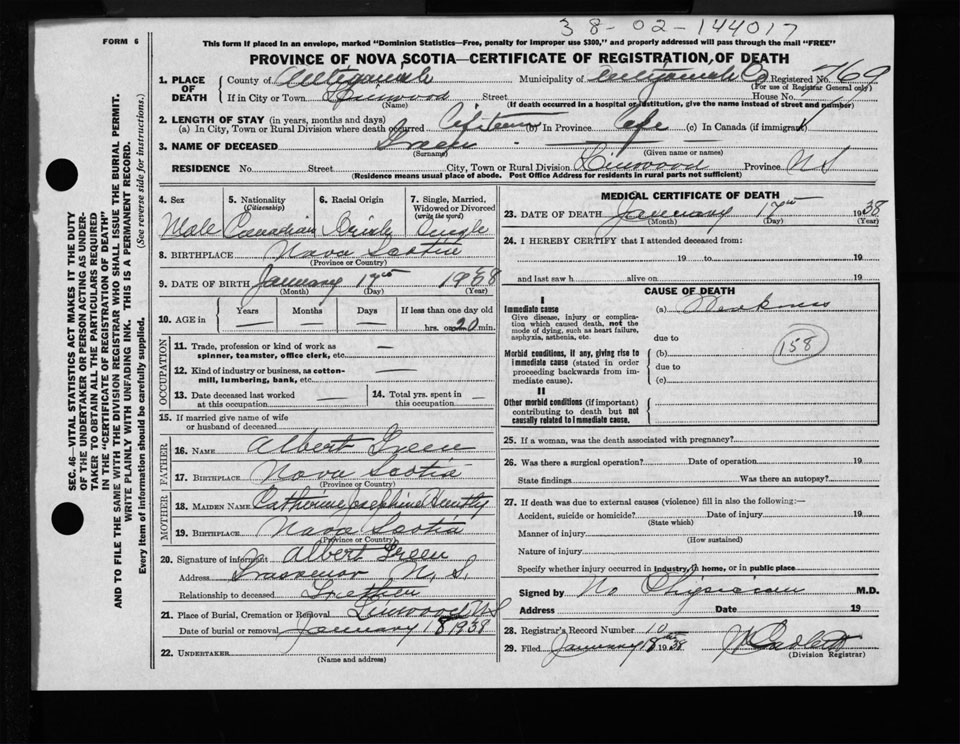 38-02-144017
FORM 6
This form if placed in an envelope, marked "Dominion Statistics—Free, penalty for improper use $300," and properly addressed will pass through the mail "FREE"
PROVINCE OF NOVA SCOTIA—CERTIFICATE OF REGISTRATION OF DEATH
1. PLACE OF DEATH
County of Antigonish Municipality of Antigonish Co Registered No. 769
(For use of Registrar General only)
If in City or Town Linwood Street House No.
(Name) (If death occurred in a hospital or institution, give the name instead of street and number)
2. LENGTH OF STAY (in years, months and days)
(a) In City, Town or Rural Division where death occurred (b) In Province Life (c) In Canada (if immigrant)
3. NAME OF DECEASED Green —
(Surname) (Given name or names)
RESIDENCE No. Street City, Town or Rural Division Linwood Province N S
(Residence means usual place of abode. Post Office Address for residents in rural parts not sufficient)
4. Sex
5. Nationality (Citizenship)
6. Racial Origin
7. Single, Married, Widowed or Divorced (write the word)
Male Canadian Irish Single
8. BIRTHPLACE Nova Scotia
(Province or Country)
9. DATE OF BIRTH January 17th 1938
(Month) (Day) (Year)
10. AGE in
Years Months Days If less than one day old
— — — hrs. or 20 min.
OCCUPATION
11. Trade, profession or kind of work as spinner, teamster, office clerk, etc. —
12. Kind of industry or business, as cotton-mill, lumbering, bank, etc. —
13. Date deceased last worked at this occupation —
14. Total yrs. spent in this occupation —
15. If married give name of wife or husband of deceased
FATHER
16. NAME Albert Green
17. BIRTHPLACE Nova Scotia
(Province or Country)
MOTHER
18. MAIDEN NAME Catherine Josephine
19. BIRTHPLACE Nova Scotia
(Province or Country)
20. Signature of informant Albert Green
Address Grosvenor N. S.
Relationship to deceased Father
21. Place of Burial, Cremation or Removal Linwood N S
Date of burial or removal January 18 1938
22. UNDERTAKER
(Name and address)
MEDICAL CERTIFICATE OF DEATH
23. DATE OF DEATH January 17th 1938
(Month) (Day) (Year)
24. I HEREBY CERTIFY that I attended deceased from:
19 to 19
and last saw h alive on 19
CAUSE OF DEATH
I
Immediate cause (a) Weakness
Give disease, injury or complication which caused death, not the mode of dying, such as heart failure, asphyxia, asthenia, etc.
due to
158
Morbid conditions, if any, giving rise to immediate cause (stated in order proceeding backwards from immediate cause).
(b)
due to
(c)
II
Other morbid conditions (if important) contributing to death but not causally related to immediate cause.
25. If a woman, was the death associated with pregnancy?
26. Was there a surgical operation? Date of operation 19
State findings Was there an autopsy?
27. If death was due to external causes (violence) fill in also the following:—
Accident, suicide or homicide? Date of injury 19
(State which)
Manner of injury
(How sustained)
Nature of injury
Specify whether injury occurred in industry, in home, or in public place
Signed by No Physician M.D.
Address Date 19
28. Registrar's Record Number 10
29. Filed January 18th 1938
(Division Registrar)
SEC. 46—VITAL STATISTICS ACT MAKES IT THE DUTY
OF THE UNDERTAKER OR PERSON ACTING AS UNDER-
TAKER TO OBTAIN ALL THE PARTICULARS REQUIRED
IN THE "CERTIFICATE OF REGISTRATION OF DEATH"
AND TO FILE THE SAME WITH THE DIVISION REGISTRAR WHO SHALL ISSUE THE BURIAL PERMIT.
WRITE PLAINLY WITH UNFADING INK. THIS IS A PERMANENT RECORD.
Every item of information should be carefully supplied. (See reverse side for instructions.)